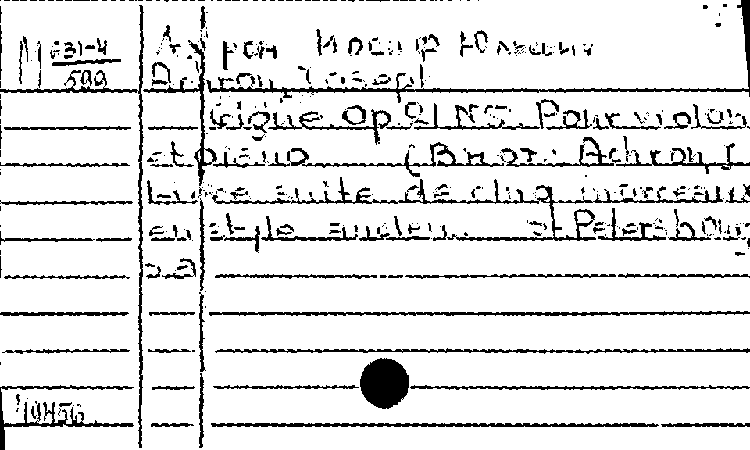 М 631-4
599
Ахрон Иосиф Юльевич
Achron, Josept
Gigue. Op 21 N5. Pour violon
et piano (В кот: Achron, I
suite de cinq morceaux
en style ancien. St. Petersbourg
s.a